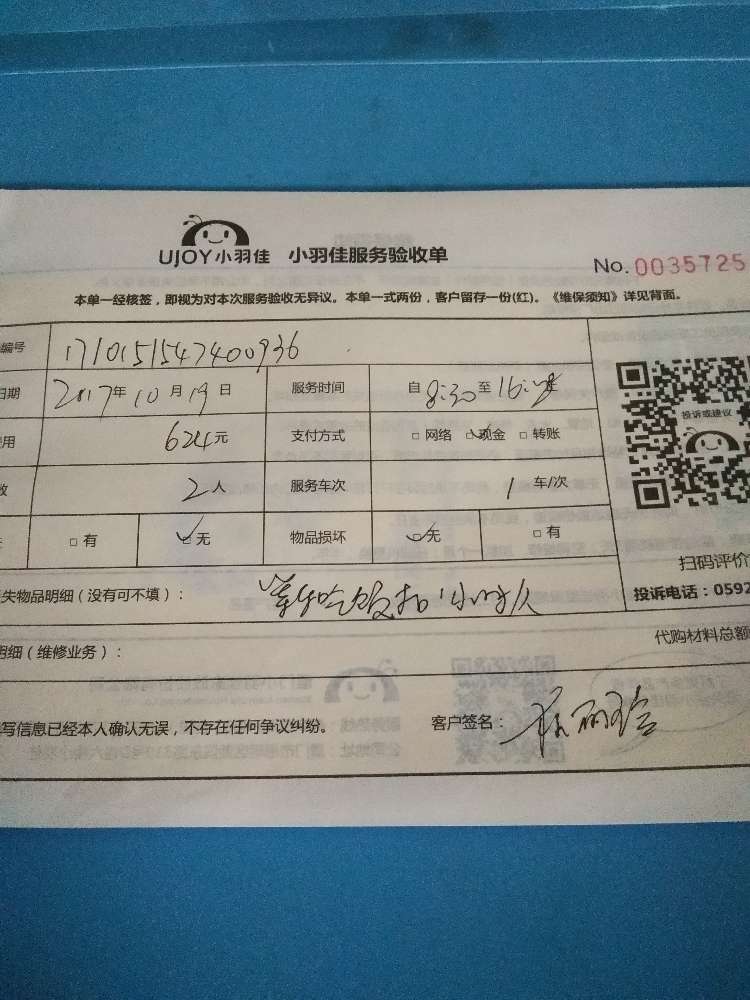 UJOY小羽佳 小羽佳服务验收单
No. 0035725
本单一经核签，即视为对本次服务验收无异议。本单一式两份，客户留存一份(红)。《维保须知》详见背面。
编号 1710151547400936
日期 2017年10月19日 服务时间 自8:30至16:
用 624元 支付方式 □网络 ☑现金 □转账
数 2人 服务车次 1车/次
□有 ☑无 物品损坏 ☑无 □有
投诉或建议
扫码评价
投诉电话：0592
失物品明细（没有可不填）：
代购材料总额
明细（维修业务）：
写信息已经本人确认无误，不存在任何争议纠纷。 客户签名：